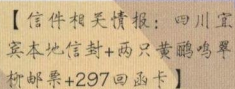 【信件相关情报：四川宜
宾本地信封+两只黄鹂鸣翠
柳邮票+297回函卡】